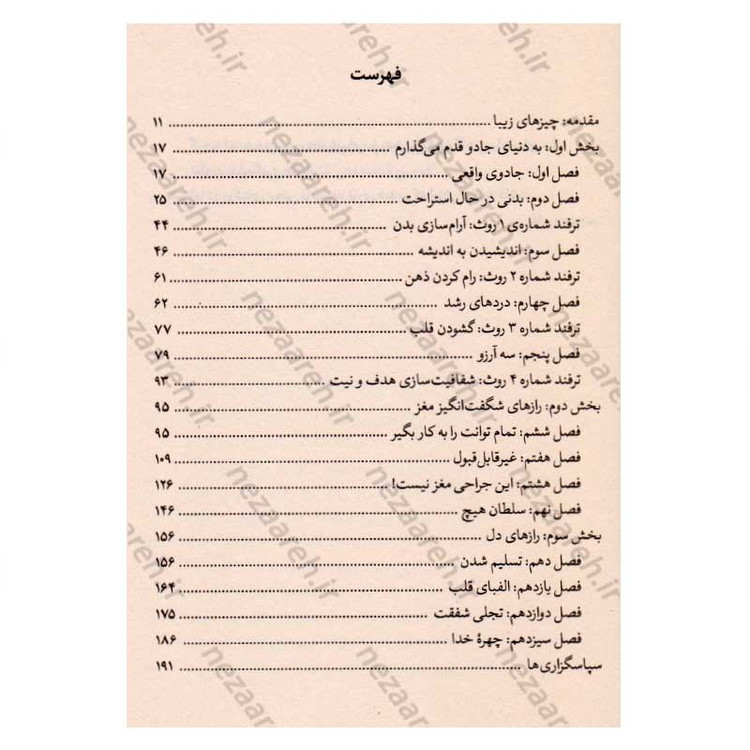 فهرست
مقدمه: چیزهای زیبا ۱۱
بخش اول: به دنیای جادو قدم می‌گذارم ۱۷
فصل اول: جادوی واقعی ۱۷
فصل دوم: بدنی در حال استراحت ۲۵
ترفند شماره‌ی ۱ روث: آرام‌سازی بدن ۴۴
فصل سوم: اندیشیدن به اندیشه ۴۶
ترفند شماره ۲ روث: رام کردن ذهن ۶۱
فصل چهارم: دردهای رشد ۶۲
ترفند شماره ۳ روث: گشودن قلب ۷۷
فصل پنجم: سه آرزو ۷۹
ترفند شماره ۴ روث: شفافیت‌سازی هدف و نیت ۹۳
بخش دوم: رازهای شگفت‌انگیز مغز ۹۵
فصل ششم: تمام توانت را به کار بگیر ۹۵
فصل هفتم: غیرقابل‌قبول ۱۰۹
فصل هشتم: این جراحی مغز نیست! ۱۲۶
فصل نهم: سلطان هیچ ۱۴۶
بخش سوم: رازهای دل ۱۵۶
فصل دهم: تسلیم شدن ۱۵۶
فصل یازدهم: الفبای قلب ۱۶۴
فصل دوازدهم: تجلی شفقت ۱۷۵
فصل سیزدهم: چهرهٔ خدا ۱۸۶
سپاسگزاری‌ها ۱۹۱
nezaareh.ir